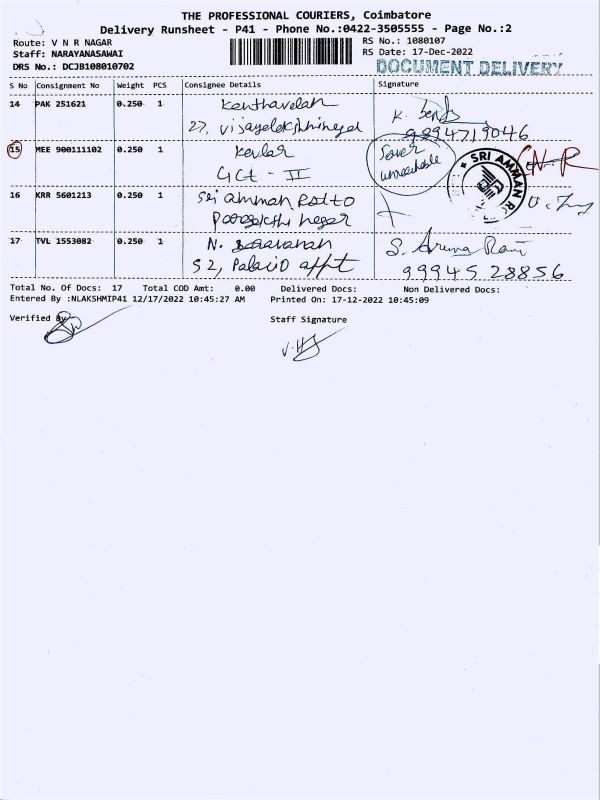 THE PROFESSIONAL COURIERS, Coimbatore
Delivery Runsheet - P41 - Phone No.:0422-3505555 - Page No.:2
Route: V N R NAGAR
RS No.: 1080107
Staff: NARAYANASAWAI
RS Date: 17-Dec-2022
DRS No.: DCJB108010702
DOCUMENT DELIVERY
S No Consignment No Weight PCS Consignee Details Signature
14 PAK 251621 0.250 1 Kanthavelan
27, Vijayalakshminagar
9894719046
15 MEE 900111102 0.250 1 Kevlar
GCt - II
unreachable
SRI AMMAN
N.R
16 KRR 5601213 0.250 1 Sri amman
nagar
17 TVL 1553082 0.250 1 N. Saravanan S. Aruna Rani
S2, Palacio appt 99945 28856
Total No. Of Docs: 17 Total COD Amt: 0.00 Delivered Docs: Non Delivered Docs:
Entered By :NLAKSHMIP41 12/17/2022 10:45:27 AM Printed On: 17-12-2022 10:45:09
Verified By
Staff Signature